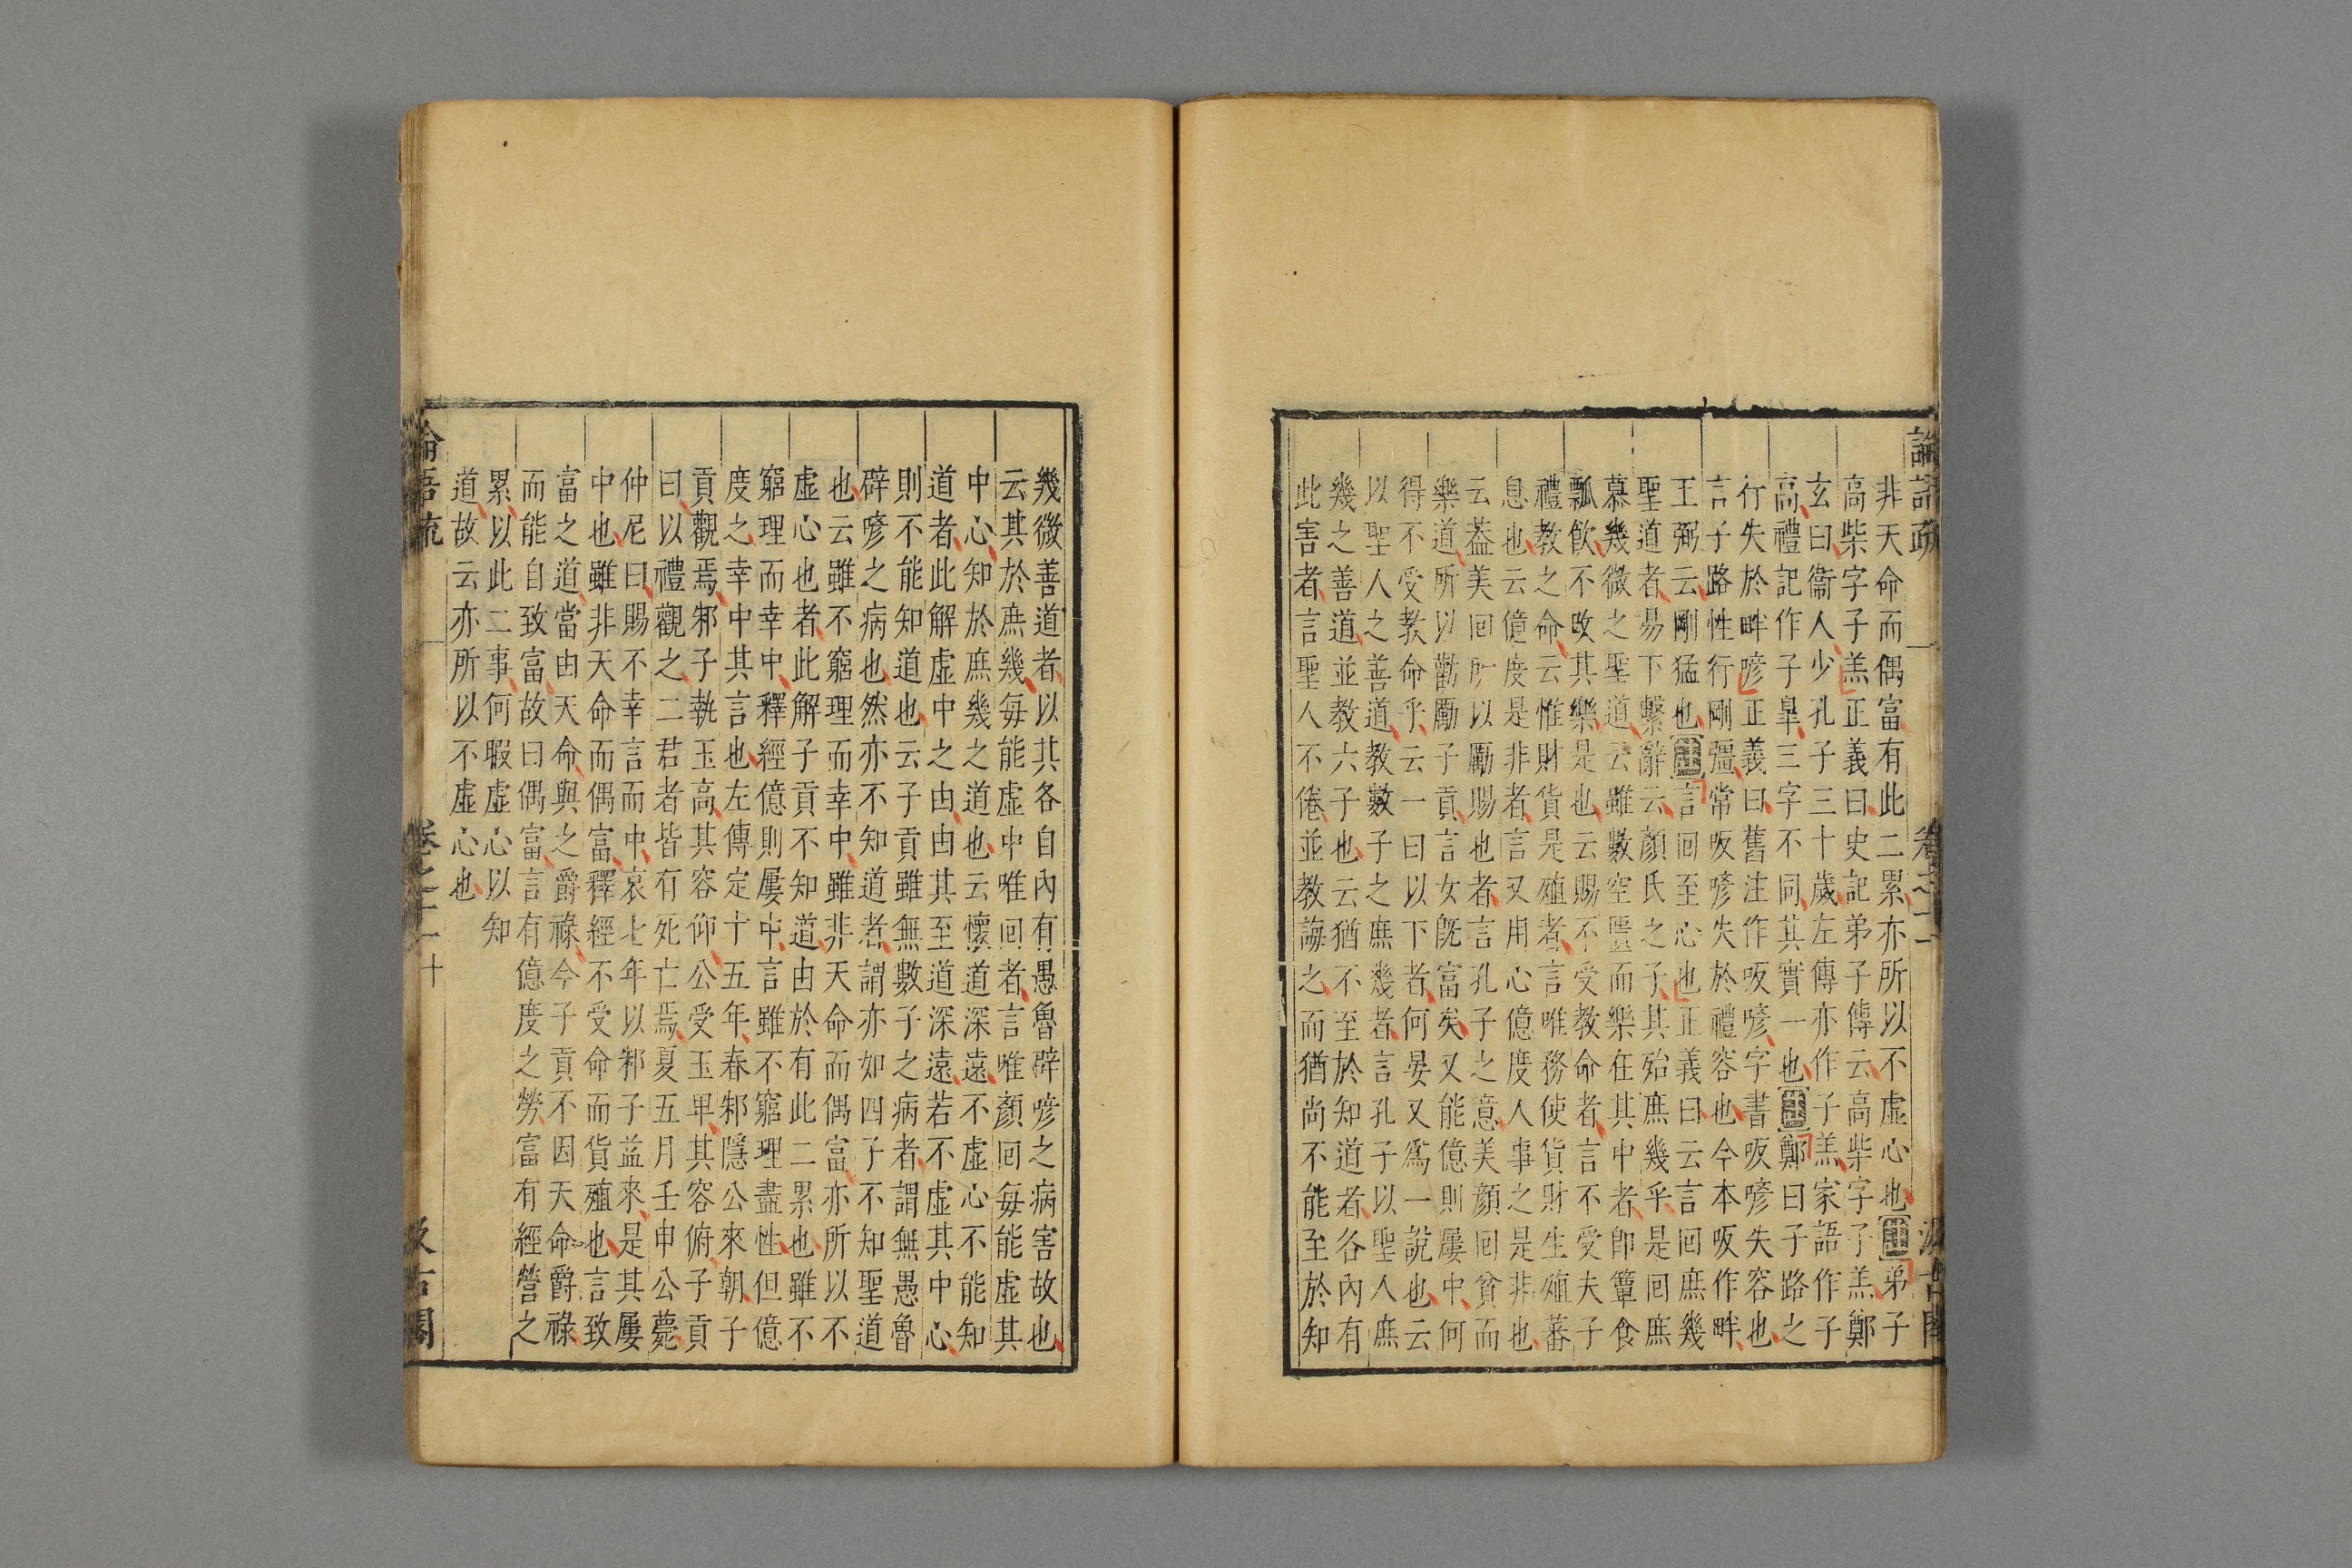 非天命而偶富有此二累亦所以不虛心也疏弟子
高柴字子羔正義曰史記弟子傳云高柴字子羔鄭
玄曰衞人少孔子三十歲左傳亦作子羔家語作子
高禮記作子臯三字不同其實一也疏鄭曰子路之
行失於畔喭正義曰舊注作㕞喭字書㕞喭失容也
言子路性行剛彊常㕞喭失於禮容也今本㕞作畔
王弼云剛猛也疏言回至心也正義曰云言回庶幾
聖道者易下繫辭云顏氏之子其殆庶幾乎是回庶
慕幾微之聖道云雖數空匱而樂在其中者卽簞食
瓢飮不改其樂是也云賜不受教命者言不受夫子
禮教之命云惟財貨是殖者言唯務使貨財生殖蕃
息也云億度是非者言又用心億度人事之是非也
云葢美回所以勵賜也者言孔子之意美顏回貧而
樂道所以勸勵子貢言女旣富矣又能億則屢中何
得不受教命乎云一曰以下者何晏又爲一說也云
以聖人之善道教數子之庶幾者言孔子以聖人庶
幾之善道並教六子也云猶不至於知道者各內有
此害者言聖人不倦並教誨之而猶尚不能至於知
幾微善道者以其各自內有愚魯辟喭之病害故也
云其於庶幾每能虛中唯回者言唯顏回每能虛其
中心知於庶幾之道也云懷道深遠不虛心不能知
道者此解虛中之由由其至道深遠若不虛其中心
則不能知道也云子貢雖無數子之病者謂無愚魯
辟喭之病也然亦不知道者謂亦如四子不知聖道
也云雖不窮理而幸中雖非天命而偶富亦所以不
虛心也者此解子貢不知道由於有此二累也雖不
窮理而幸中釋經億則屢中言雖不窮理盡性但億
度之幸中其言也左傳定十五年春邾隱公來朝子
貢觀焉邾子執玉高其容仰公受玉卑其容俯子貢
曰以禮觀之二君者皆有死亡焉夏五月壬申公薨
仲尼曰賜不幸言而中哀七年以邾子益來是其屢
中也雖非天命而偶富釋經不受命而貨殖也言致
富之道當由天命與之爵祿今子貢不因天命爵祿
而能自致富故曰偶富言有億度之勞富有經營之
累以此二事何暇虛心以知
道故云亦所以不虛心也